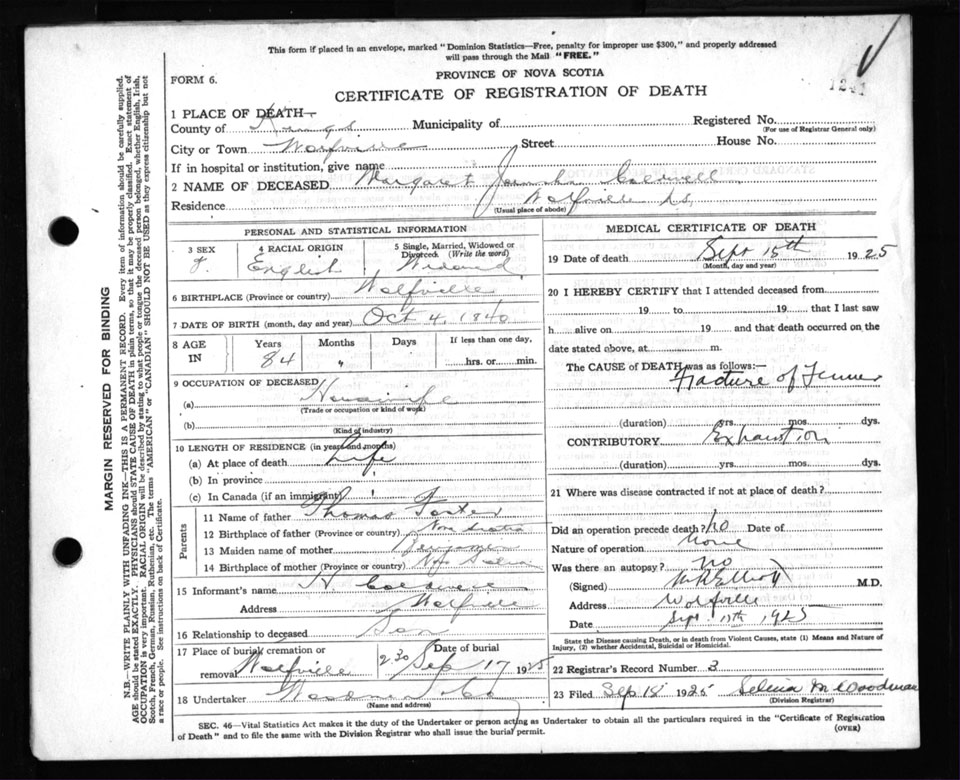 This form if placed in an envelope, marked "Dominion Statistics—Free, penalty for improper use $300," and properly addressed
will pass through the Mail "FREE."
1241
FORM 6.
PROVINCE OF NOVA SCOTIA
CERTIFICATE OF REGISTRATION OF DEATH
1 PLACE OF DEATH—
County of Kings Municipality of Registered No.
(For use of Registrar General only)
City or Town Wolfville Street House No.
If in hospital or institution, give name
2 NAME OF DECEASED Margaret Coldwell
Residence Wolfville N.S.
(Usual place of abode)
PERSONAL AND STATISTICAL INFORMATION
3 SEX 4 RACIAL ORIGIN 5 Single, Married, Widowed or
Divorced (Write the word)
F. English Widowed
6 BIRTHPLACE (Province or country) Wolfville
7 DATE OF BIRTH (month, day and year) Oct 4, 1840
8 AGE IN Years Months Days If less than one day,
84 " hrs. or min.
9 OCCUPATION OF DECEASED
(a) Housewife
(Trade or occupation or kind of work)
(b)
(Kind of industry)
10 LENGTH OF RESIDENCE (in years and months)
(a) At place of death Life
(b) In province "
(c) In Canada (if an immigrant) "
Parents
11 Name of father Thomas
12 Birthplace of father (Province or country) Nova Scotia
13 Maiden name of mother
14 Birthplace of mother (Province or country) Nova Scotia
15 Informant's name H Coldwell
Address Wolfville
16 Relationship to deceased Son
17 Place of burial cremation or removal Wolfville Date of burial 2 30 Sep 17 1925
18 Undertaker Woodman Co
(Name and address)
MEDICAL CERTIFICATE OF DEATH
19 Date of death Sept 15th 1925
(Month, day and year)
20 I HEREBY CERTIFY that I attended deceased from
19 to 19 that I last saw
h alive on 19 and that death occurred on the
date stated above, at m.
The CAUSE of DEATH was as follows:—
Fracture of Femur
(duration) yrs. mos. dys.
CONTRIBUTORY Exhaustion
(duration) yrs. mos. dys.
21 Where was disease contracted if not at place of death?
Did an operation precede death? no Date of
Nature of operation None
Was there an autopsy? no
(Signed) Elliott M.D.
Address Wolfville
Date Sept. 15th 1925
State the Disease causing Death, or in death from Violent Causes, state (1) Means and Nature of
Injury, (2) whether Accidental, Suicidal or Homicidal.
22 Registrar's Record Number 3
23 Filed Sep 18 1925 Selina M Woodman
(Division Registrar)
SEC. 46—Vital Statistics Act makes it the duty of the Undertaker or person acting as Undertaker to obtain all the particulars required in the "Certificate of Registration
of Death" and to file the same with the Division Registrar who shall issue the burial permit.
(OVER)
MARGIN RESERVED FOR BINDING
N.B.—WRITE PLAINLY WITH UNFADING INK—THIS IS A PERMANENT RECORD. Every item of information should be carefully supplied.
AGE should be stated EXACTLY. PHYSICIANS should STATE CAUSE OF DEATH in plain terms, so that it may be properly classified. Exact statement of
OCCUPATION is very important. RACIAL ORIGIN will be described by stating to what people or tongue the deceased person belonged, whether English, Irish,
Scotch, French, German, Russian, Ruthenian, etc. The terms "AMERICAN" or "CANADIAN" SHOULD NOT BE USED as they express citizenship but not
a race or people. See instructions on back of Certificate.